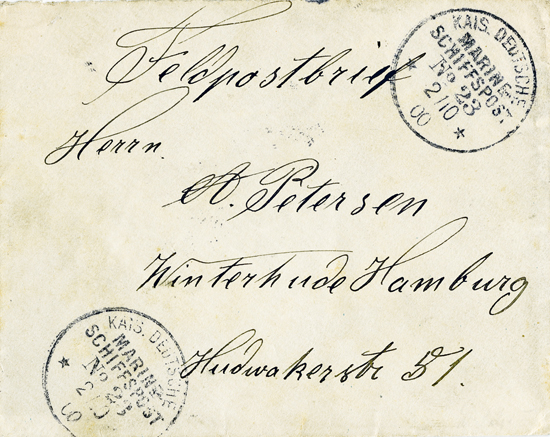 Feldpostbrief
KAIS. DEUTSCHE
MARINE-
SCHIFFSPOST
No 23
2/10
00
*
Herrn
A. Petersen
Winterhude Hamburg
Hudwakerstr. 51.
KAIS. DEUTSCHE
MARINE-
SCHIFFSPOST
No 23
2/10
00
*